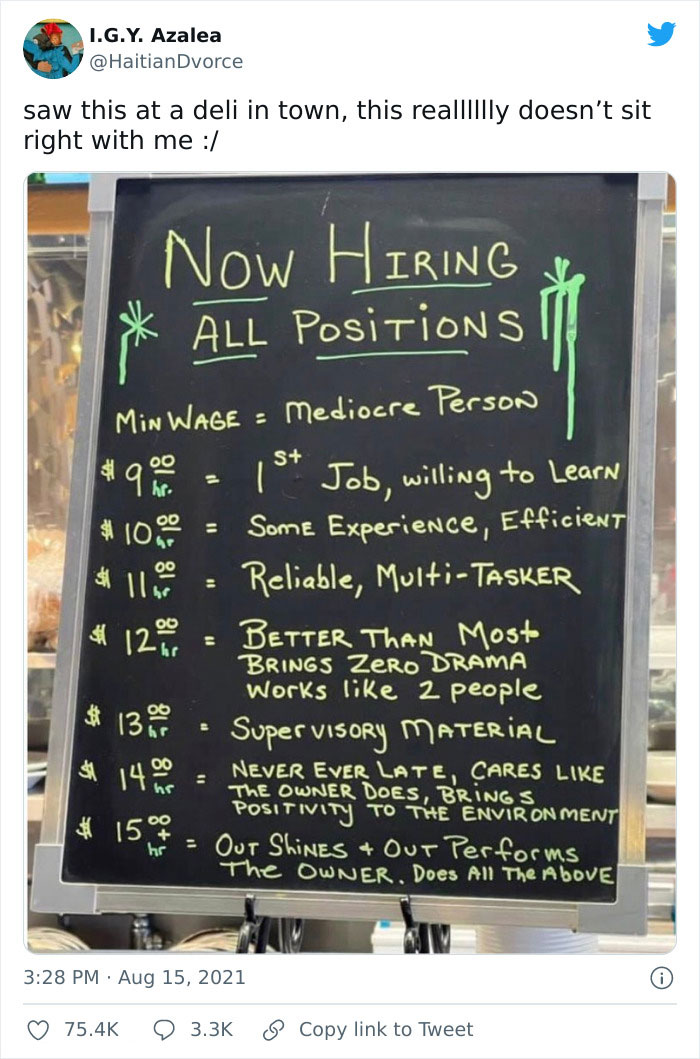 I.G.Y. Azalea
@HaitianDvorce
saw this at a deli in town, this realllllly doesn’t sit
right with me :/
Now Hiring
ALL PoSiTiONS
MiN WAGE = mediocre PersoN
$9.00 hr. = 1st Job, willing to LearN
$10.00 hr = SomE ExperieNce, EfficieNT
$11.00 hr = Reliable, Multi-TASKER
$12.00 hr = BETTER THAN Most
BRINGS ZerO DRAMA
Works like 2 people
$13.00 hr = SuperviSORy MATERiAL
$14.00 hr = NEVER EVER LATE, CARES LIKE
THE OWNER DOES, BRINGS
POSITIVITy TO THE ENVIRONMENT
$15.00+ hr = OUT SHiNES + OUT Performs
The OWNER. Does All The AbovE
3:28 PM · Aug 15, 2021
75.4K 3.3K Copy link to Tweet